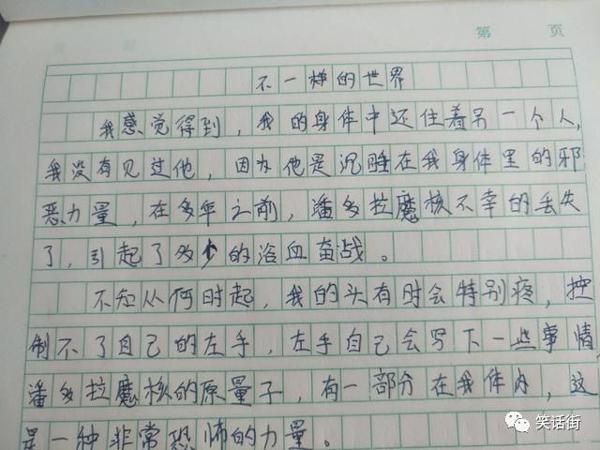 第 页
不一样的世界
我感觉得到，我的身体中还住着另一个人，
我没有见过他，因为他是沉睡在我身体里的邪
恶力量，在多年之前，潘多拉魔核不幸的丢失
了，引起了多少的浴血奋战。
不知从何时起，我的头有时会特别疼，控
制不了自己的左手，左手自己会写下一些事情
潘多拉魔核的原量子，有一部分在我体内，这
是一种非常恐怖的力量。
笑话街